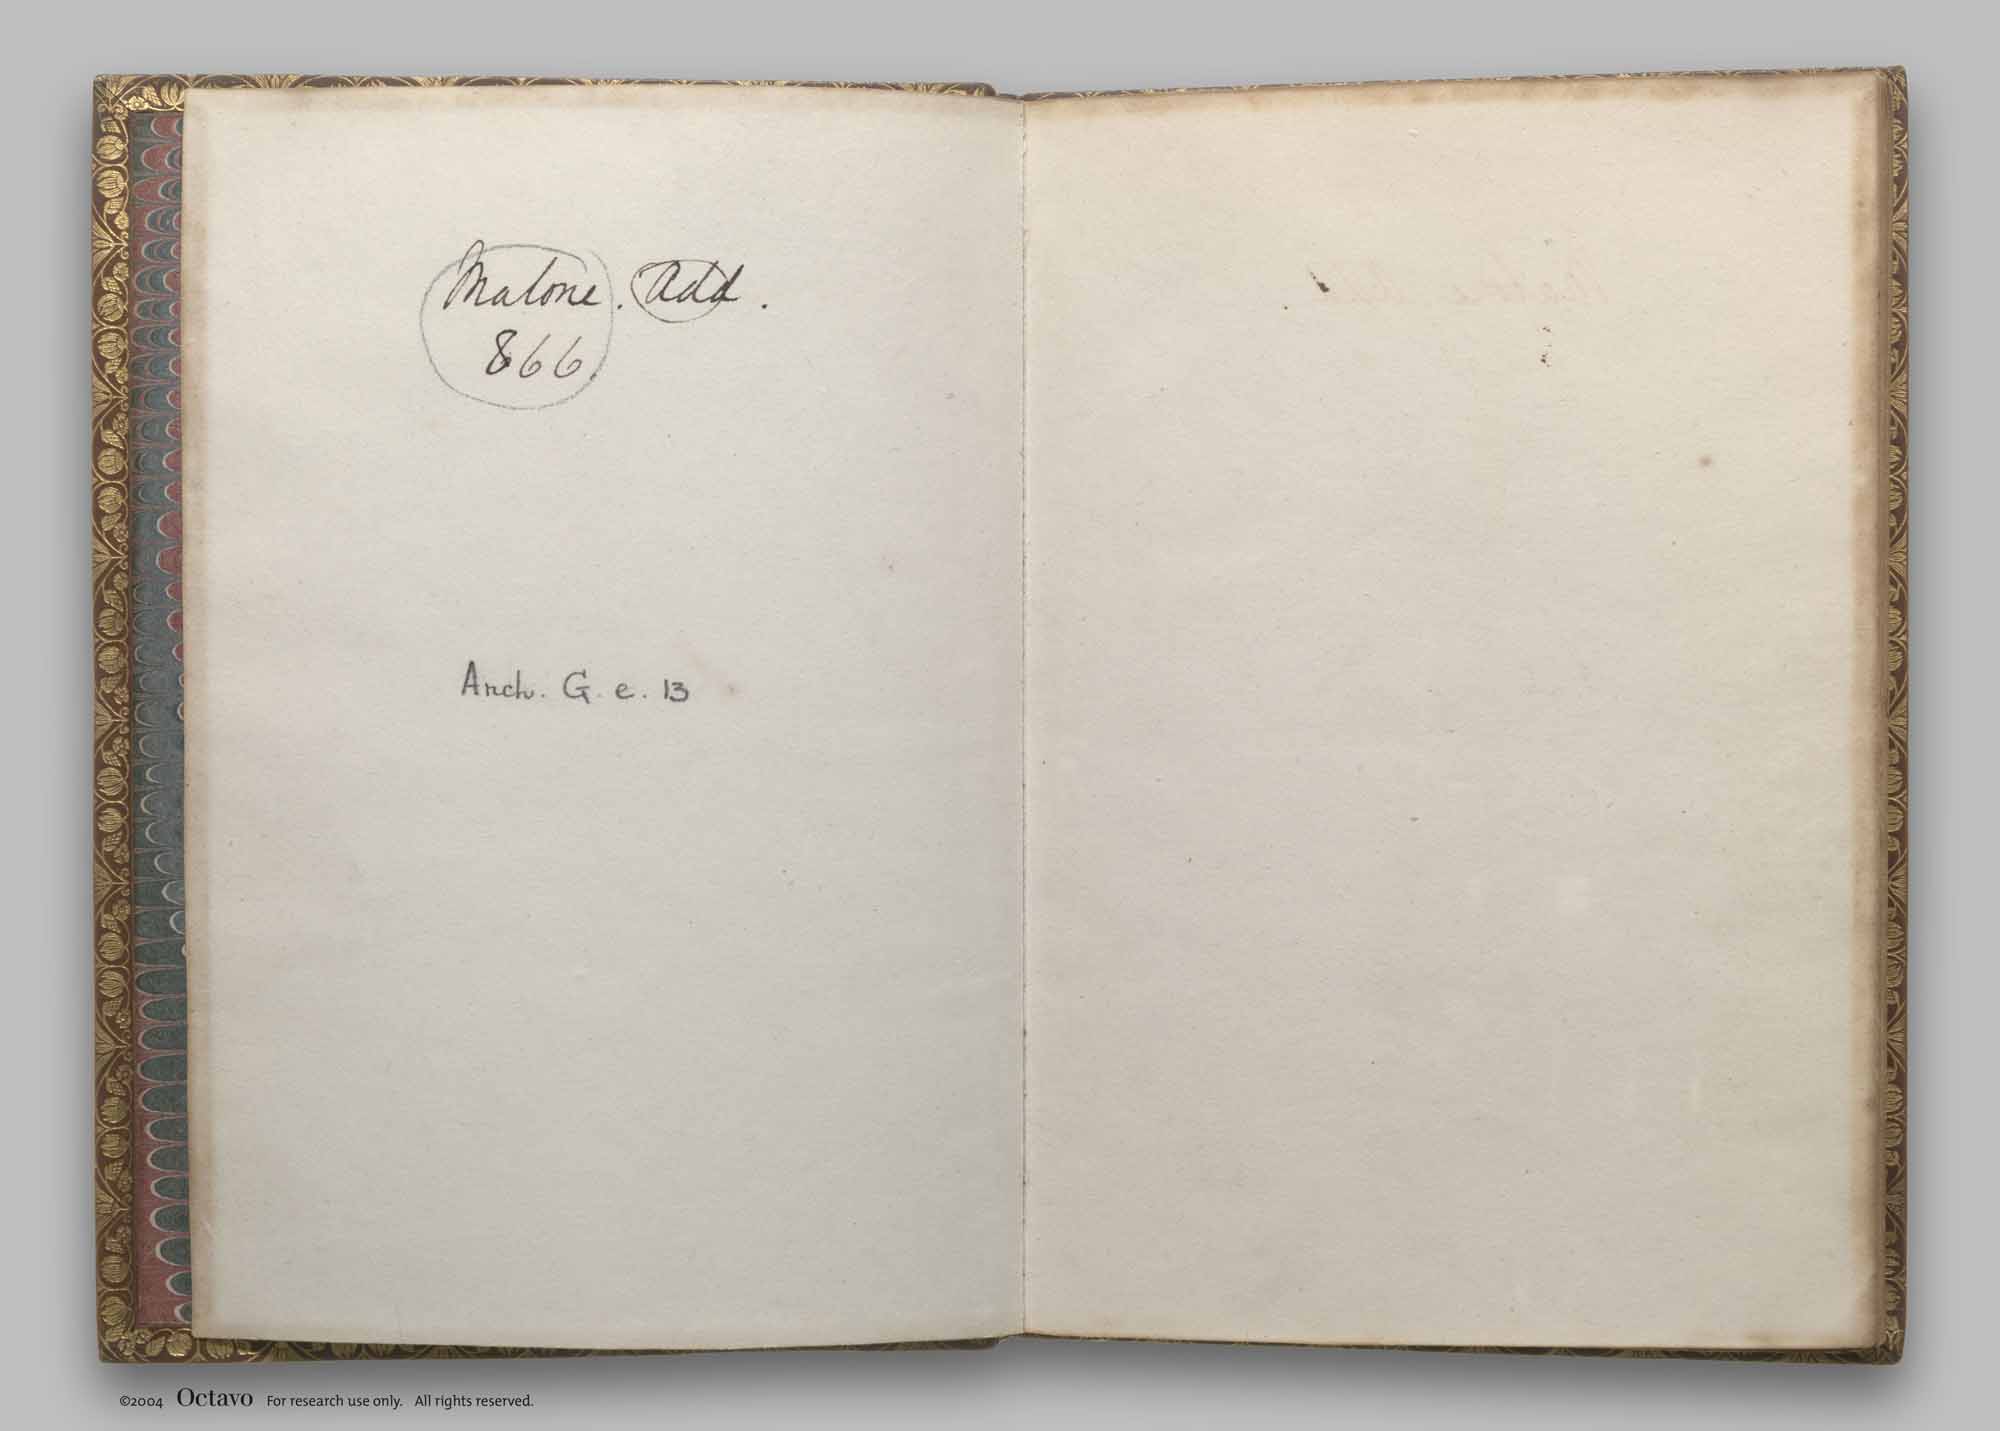 Malone. Add.
866.
Arch. G. e. 13
©2004 Octavo For research use only. All rights reserved.